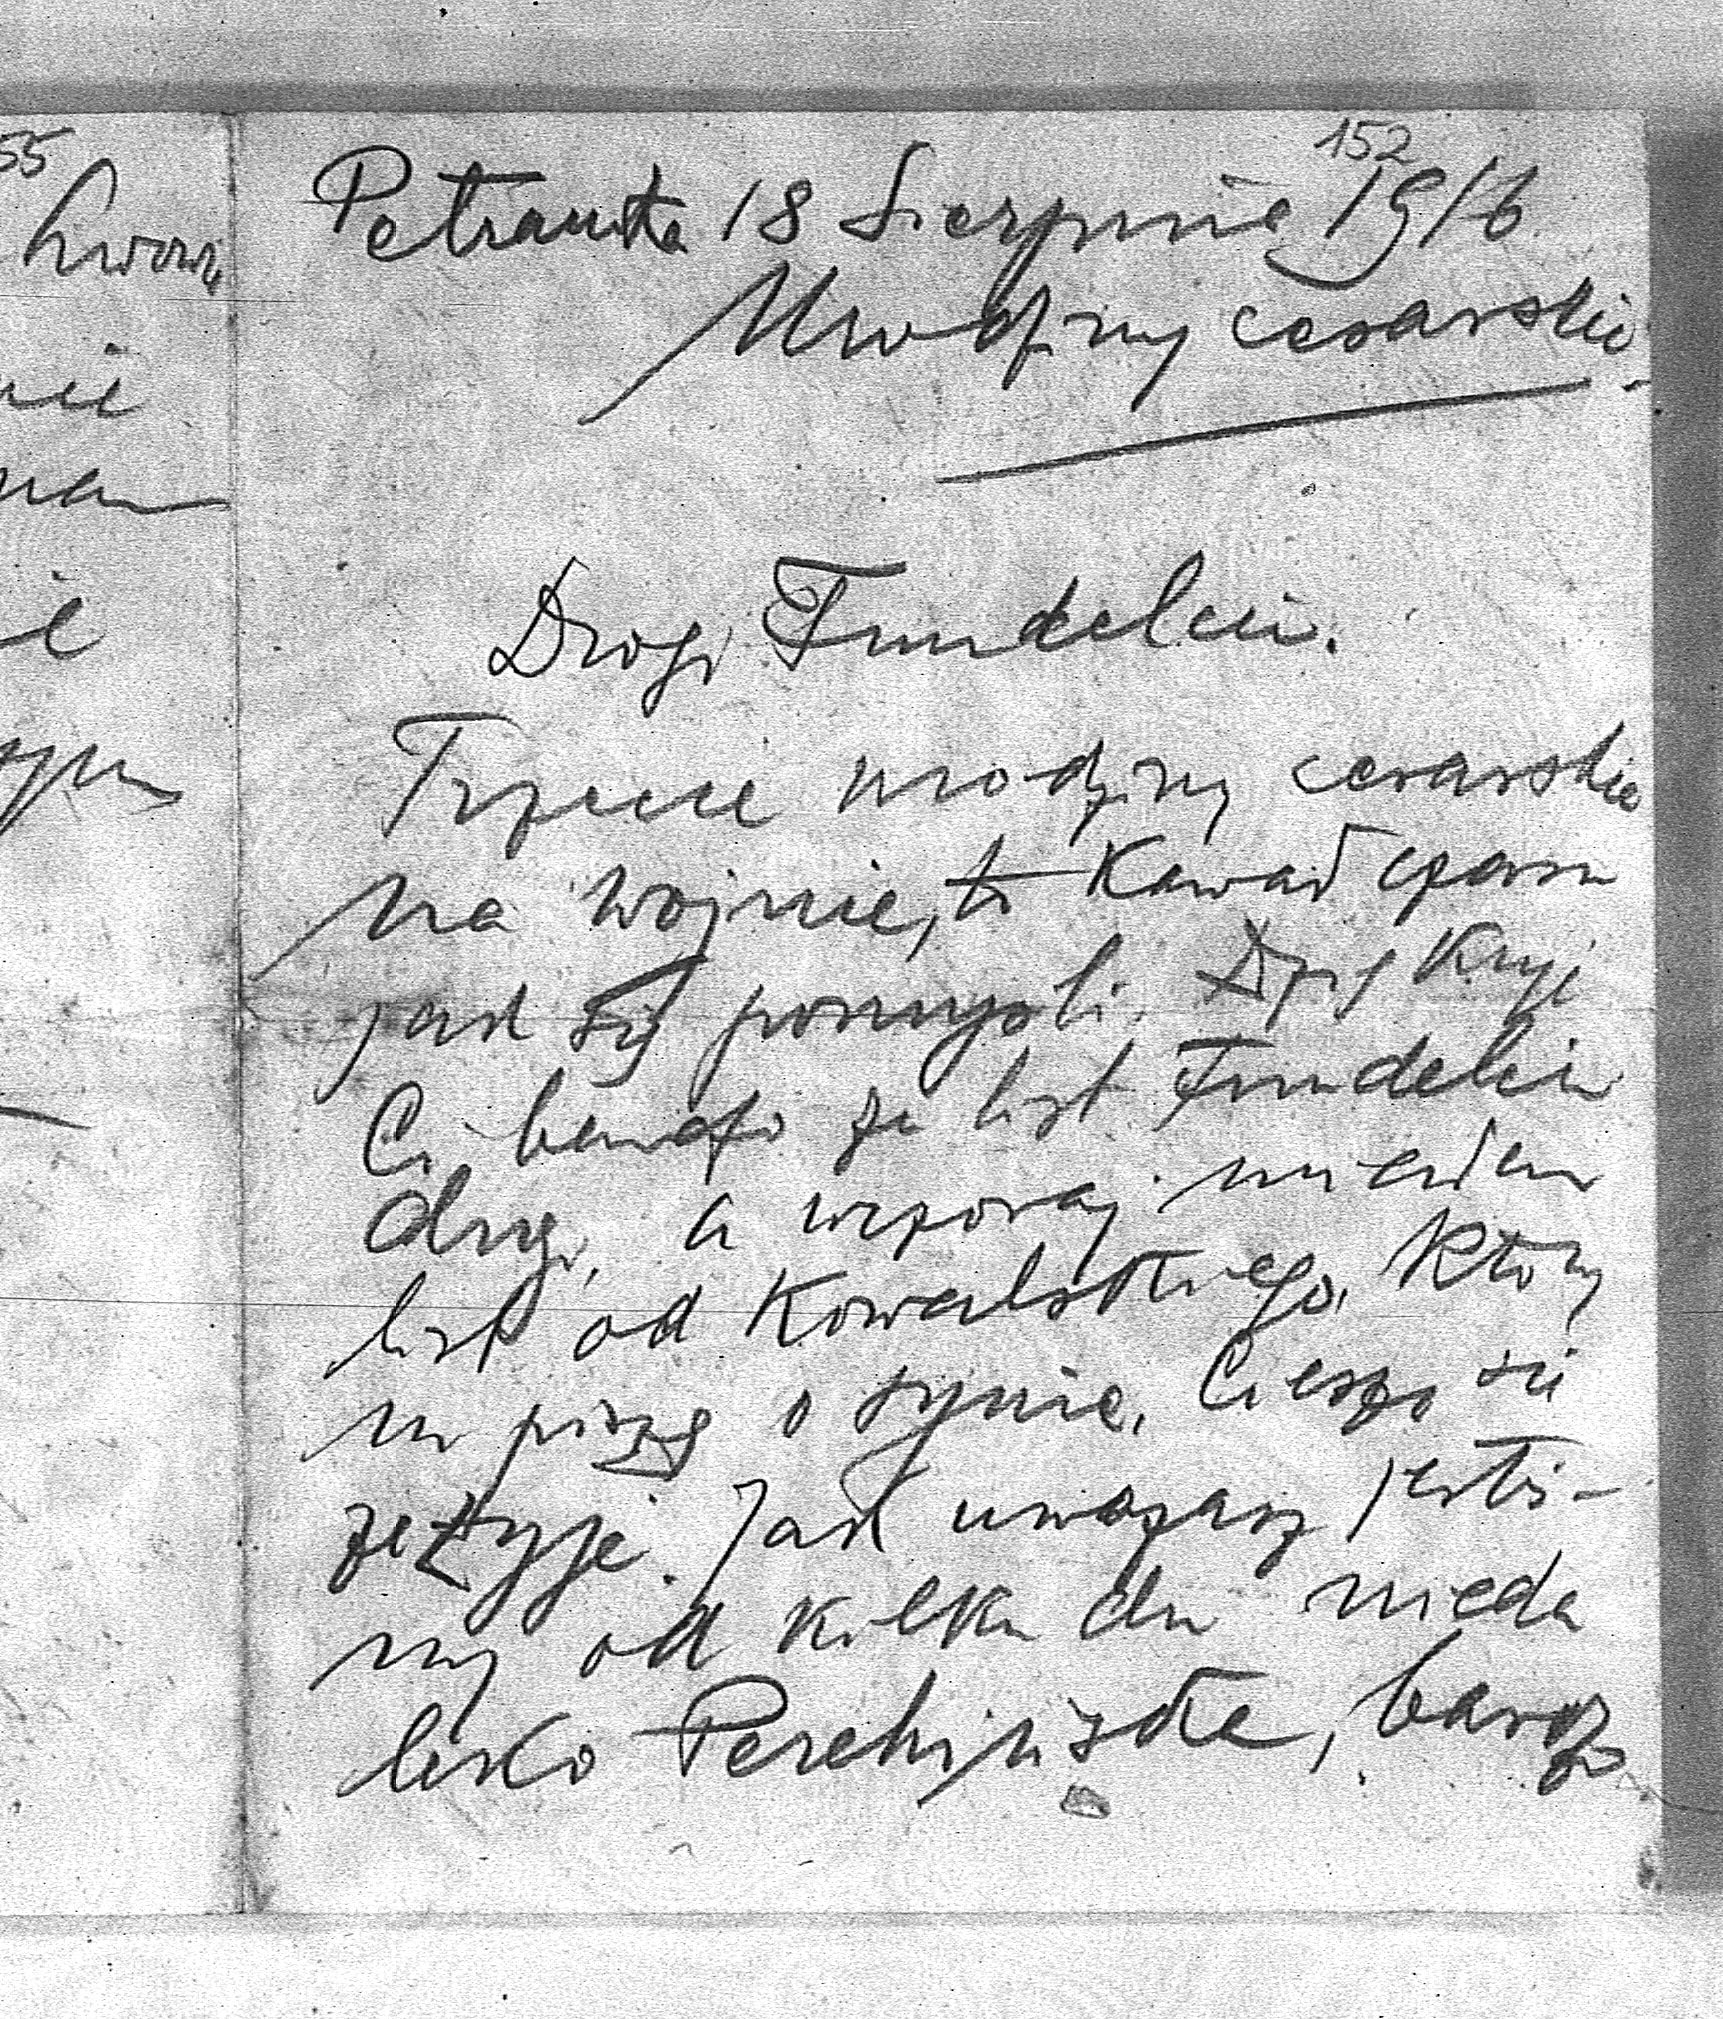 55
152
Petranka 18 Sierpnia 1916
Urodziny cesarskie
Drogi Fundelciu.
Trzecie urodziny cesarskie
na wojnie, to kawał czasu
jak się pomyśli. Dziękuję
Ci bardzo za list Fundelciu
drogi, a wczoraj miałem
list od Kowalskiego, który
mi pisze o synie. Cieszę się
że żyje. Jak uważasz jesteś-
my od kilku dni nieda
leko Perehińska, bardzo